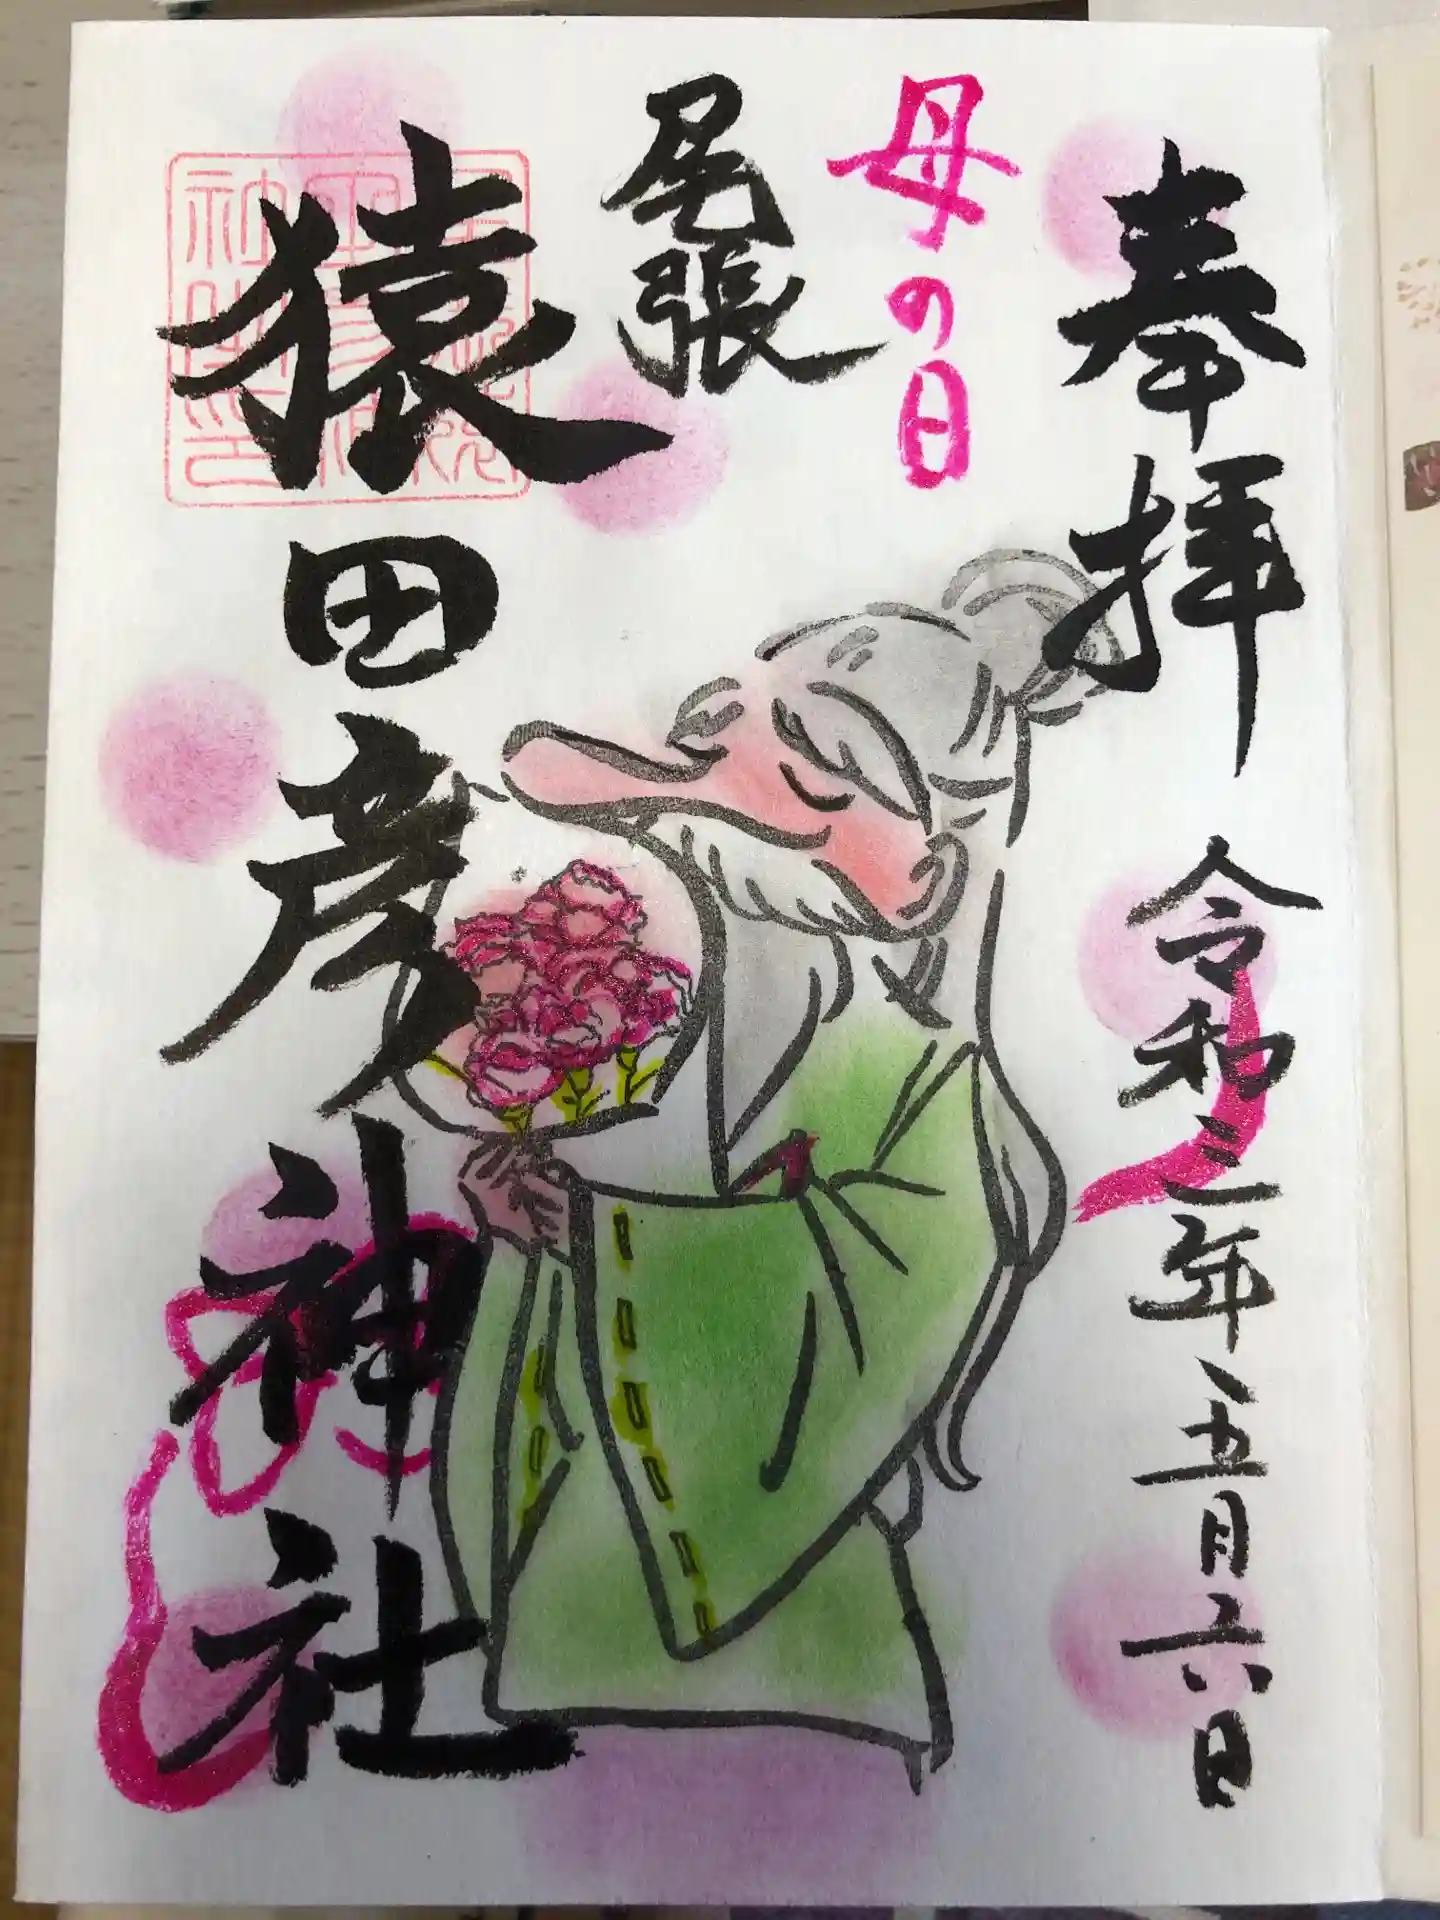 奉拝 令和三年五月六日
母の日
尾張
猿田彦神社